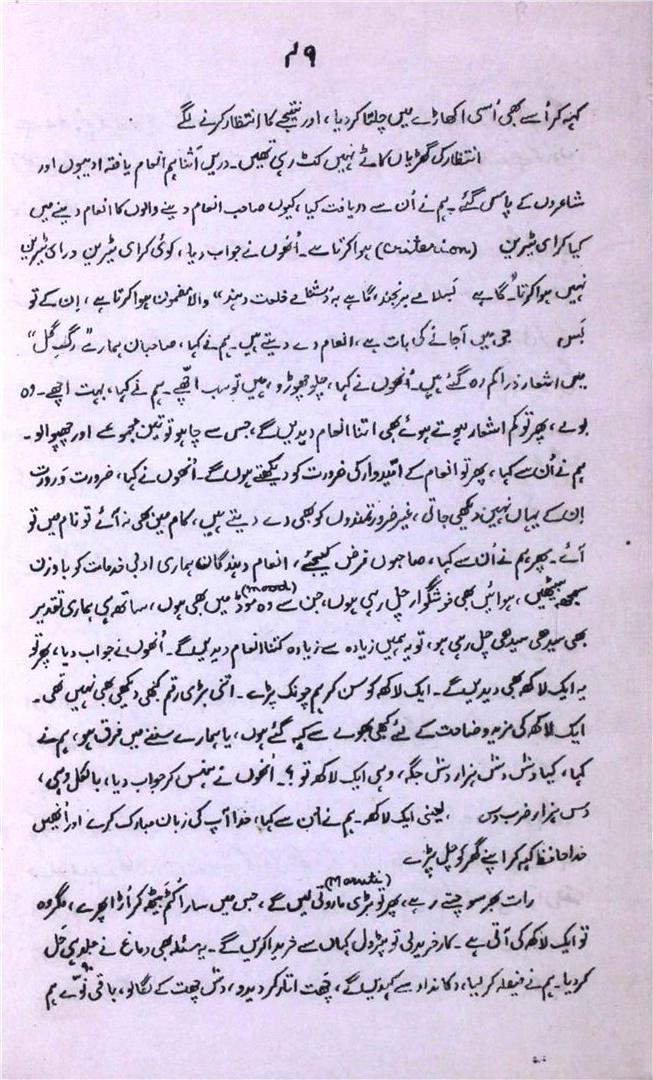 ۴۹
کہہ کر اُسے بھی اُسی اکھاڑے میں چلتا کر دیا، اور نتیجے کا انتظار کرنے لگے
انتظار کی گھڑیاں کاٹے نہیں کٹ رہی تھیں۔ دریں اثنا ہم انعام یافتہ ادیبوں اور
شاعروں کے پاس گئے۔ ہم نے اُن سے دریافت کیا، کیوں صاحب انعام دینے والوں کا انعام دینے میں
کیا کرای ٹیرین (Criterion) ہوا کرتا ہے۔ اُنھوں نے جواب دیا، کوئی کرای ٹیرین ورای ٹیرین
نہیں ہوا کرتا۔ گاہے بسلامے برنجند، گاہے بہ دُشنامے خلعت دہند“ والا مضمون ہوا کرتا ہے، اِن کے تو
بَس جی میں آجانے کی بات ہے، انعام دے دیتے ہیں۔ ہم نے کہا، صاحبان ہمارے ”رگِ گُل“
میں اشعار ذرا کم رہ گئے ہیں۔ اُنھوں نے کہا، چلو چھوڑو، ہیں تو سب اچھّے۔ ہم نے کہا، بہت اچھے۔ وہ
بولے، پھر تو کم اشعار ہوتے ہوئے بھی اتنا انعام دیدیں گے، جس سے چاہو تو تین مجموعے اور چھپوالو۔
ہم نے اُن سے کہا، پھر تو انعام کے اُمّیدوار کی ضرورت کو دیکھتے ہوں گے۔ اُنھوں نے کہا، ضرورت وَرورت
اِن کے یہاں نہیں دیکھی جاتی، غیر ضرورتمندوں کو بھی دے دیتے ہیں، کام میں بھی نہ آئے تو نام میں تو
آئے۔ پھر ہم نے اُن سے کہا، صاحبوں فرض کیجئے، انعام دہندگان ہماری ادبی خدمات کو باوزن
سمجھ بیٹھیں، ہوائیں بھی خوشگوار چل رہی ہوں، جن سے وہ موڈ (mood) میں بھی ہوں، ساتھ ہی ہماری تقدیر
بھی سیدھی سیدھی چل رہی ہو، تو یہ ہمیں زیادہ سے زیادہ کتنا انعام دیدیں گے۔ اُنھوں نے جواب دیا، پھر تو
یہ ایک لاکھ بھی دیدیں گے۔ ایک لاکھ کو سن کر ہم چونک پڑے۔ اتنی بڑی رقم کبھی دیکھی بھی نہیں تھی۔
ایک لاکھ کی مزید وضاحت کے لئے کبھی بھولے سے کہہ گئے ہوں، یا ہمارے سننے میں فرق ہو، ہم نے
کہا، کیا دش دش ہزار دش جگہ، وہی ایک لاکھ تو؟۔ اُنھوں نے ہنس کر جواب دیا، بالکل وہی،
دَس ہزار ضرب دس، یعنی ایک لاکھ۔ ہم نے اُن سے کہا، خدا آپ کی زبان مبارک کرے اور اُنھیں
خدا حافظ کہہ کر اپنے گھر کو چل پڑے
رات بھر سوچتے رہے، پھر تو بڑی ماروتی (Maruti) لیں گے، جس میں سارا کُم بیٹھ کر اُڑا پھرے، مگر وہ
تو ایک لاکھ کی آتی ہے۔ کار خرید لی تو پیڑول کہاں سے خریدا کریں گے۔ یہ مسئلہ بھی دماغ نے جلد ہی حَل
کر دیا۔ ہم نے فیصلہ کر لیا، دکاندار سے کہہ دیں گے، چَھت اتار کر دیدو، دش چھت کے لگالو، باقی نوّے ۹۰ ہم